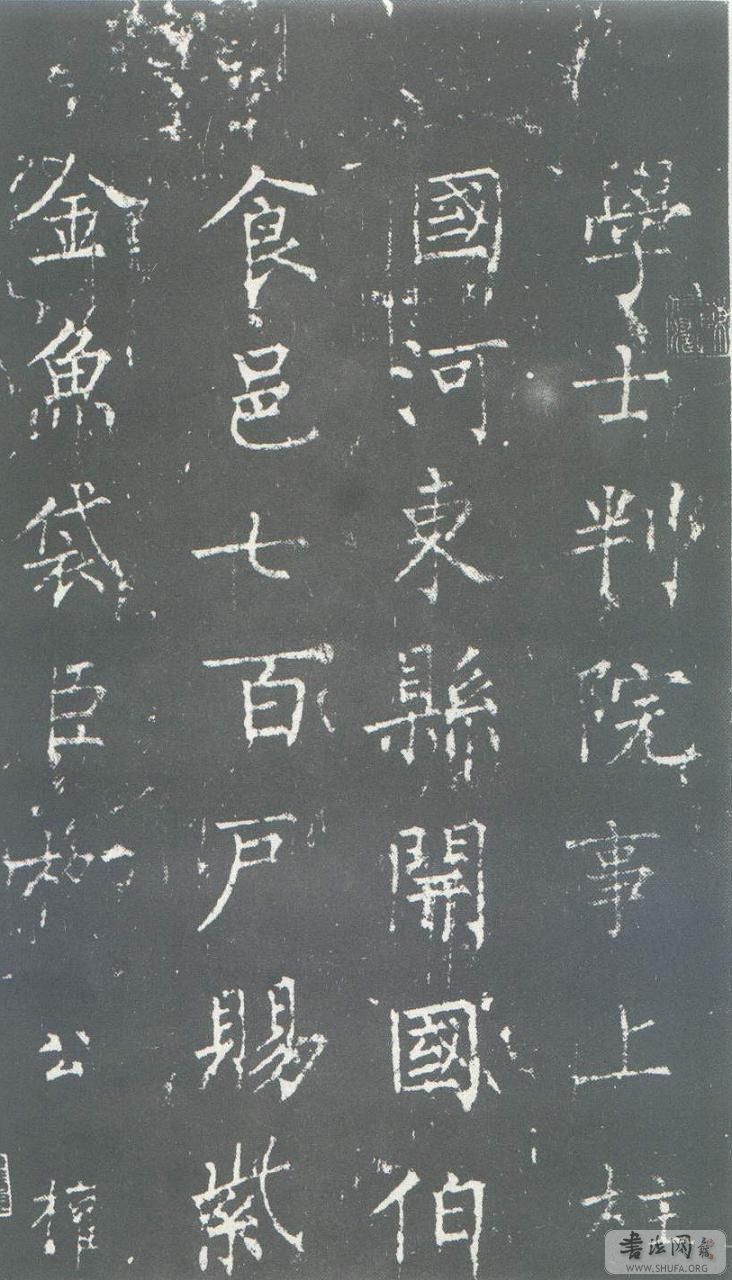 學士判院事上柱
國河東縣開國伯
食邑七百户賜紫
金魚袋臣柳公權
書法网
WWW.SHUFA.ORG